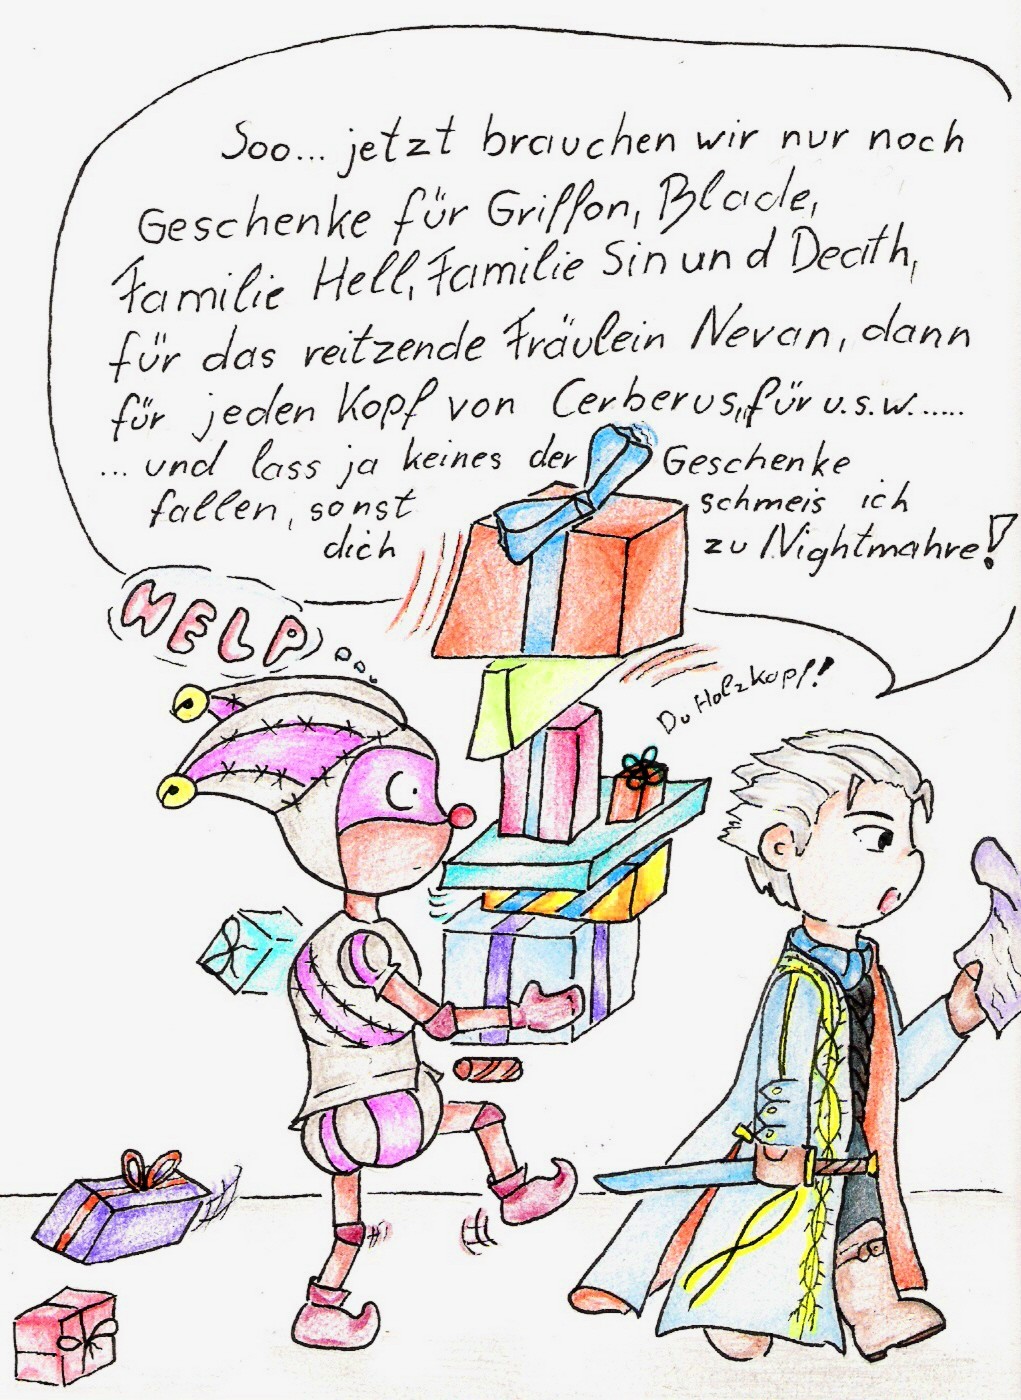 Soo... jetzt brauchen wir nur noch
Geschenke für Griffon, Blade,
Familie Hell, Familie Sin und Death,
für das reitzende Fräulein Nevan, dann
für jeden Kopf von Cerberus, für u.s.w.....
... und lass ja keines der Geschenke
fallen, sonst schmeis ich
dich zu Nightmahre!
HELP
Du Holzkopf!